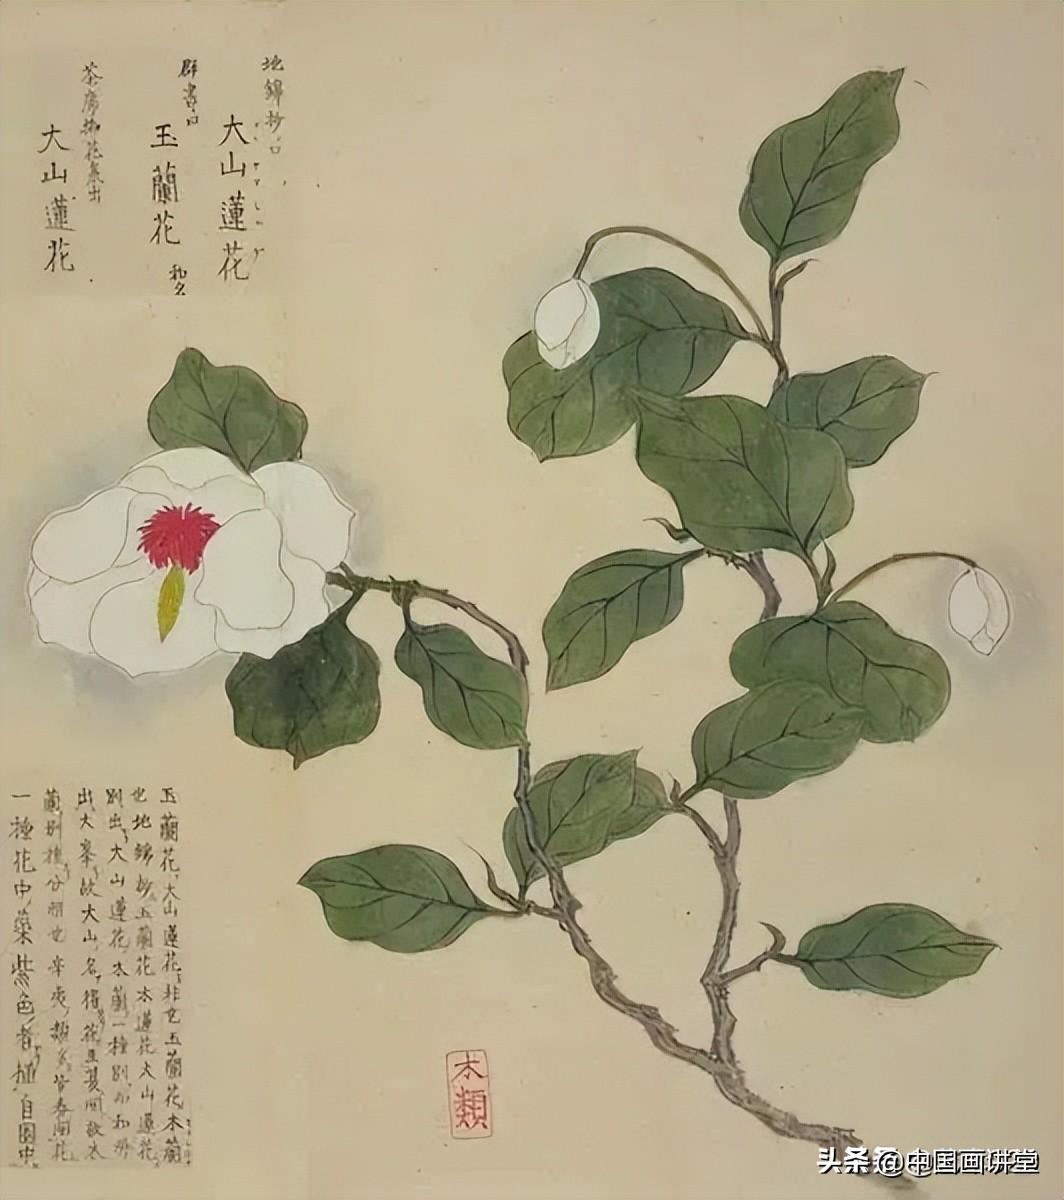 地錦抄曰
大山蓮花
群書曰
玉蘭花
和名
茶席挿花集出
大山蓮花
玉蘭花大山蓮花非也玉蘭花木蘭
也地錦抄玉蘭花木蓮花大山蓮花
別出大山蓮花木蘭一種別而和州
出大峯故大山名得花且夏開故木
蘭別種分明也辛夷類多皆春開花
一種花中蘂紫色者植自園中
木類
头条 @中国画讲堂